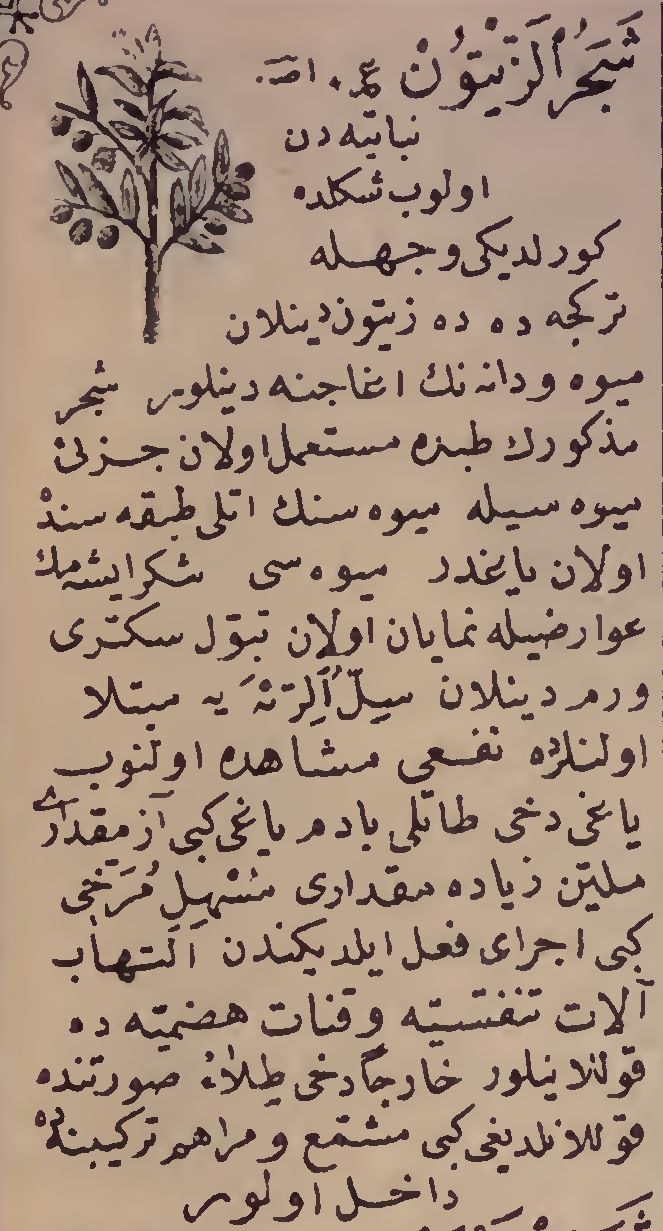 شَجَرُ ٱلزَّيْتُونْ عم. اصـ.
نباتیه دن
اولوب شکلده
کورلدیکی وجهله
ترکجه ده ده زیتون دینلان
میوه ودانه نك اغاجنه دینلور شجر
مذکورك طبده مستعمل اولان جزئ
میوه سیله میوه سنك اتلی طبقه سنده
اولان یاغدر میوه سی شکرایشه مك
عوارضیله نمایان اولان تبوّل سکّری
ورم دینلان سِلُّ ٱلرِّئَهَ یه مبتلا
اولنلرده نفعی مشاهده اولنوب
یاغی دخی طاتلی بادم یاغی کبی آز مقداری
ملیّن زیاده مقداری مُسْهِل مُرَخّی
کبی اجرای فعل ایلدیکندن اَلتهاب
آلات تنفسیّه وقنات هضمیّه ده
قوللانیلور خارجاً دخی طِلاءً صورتنده
قوللانلدیغی کبی مشمّع ومراهم ترکیبنده
داخل اولور